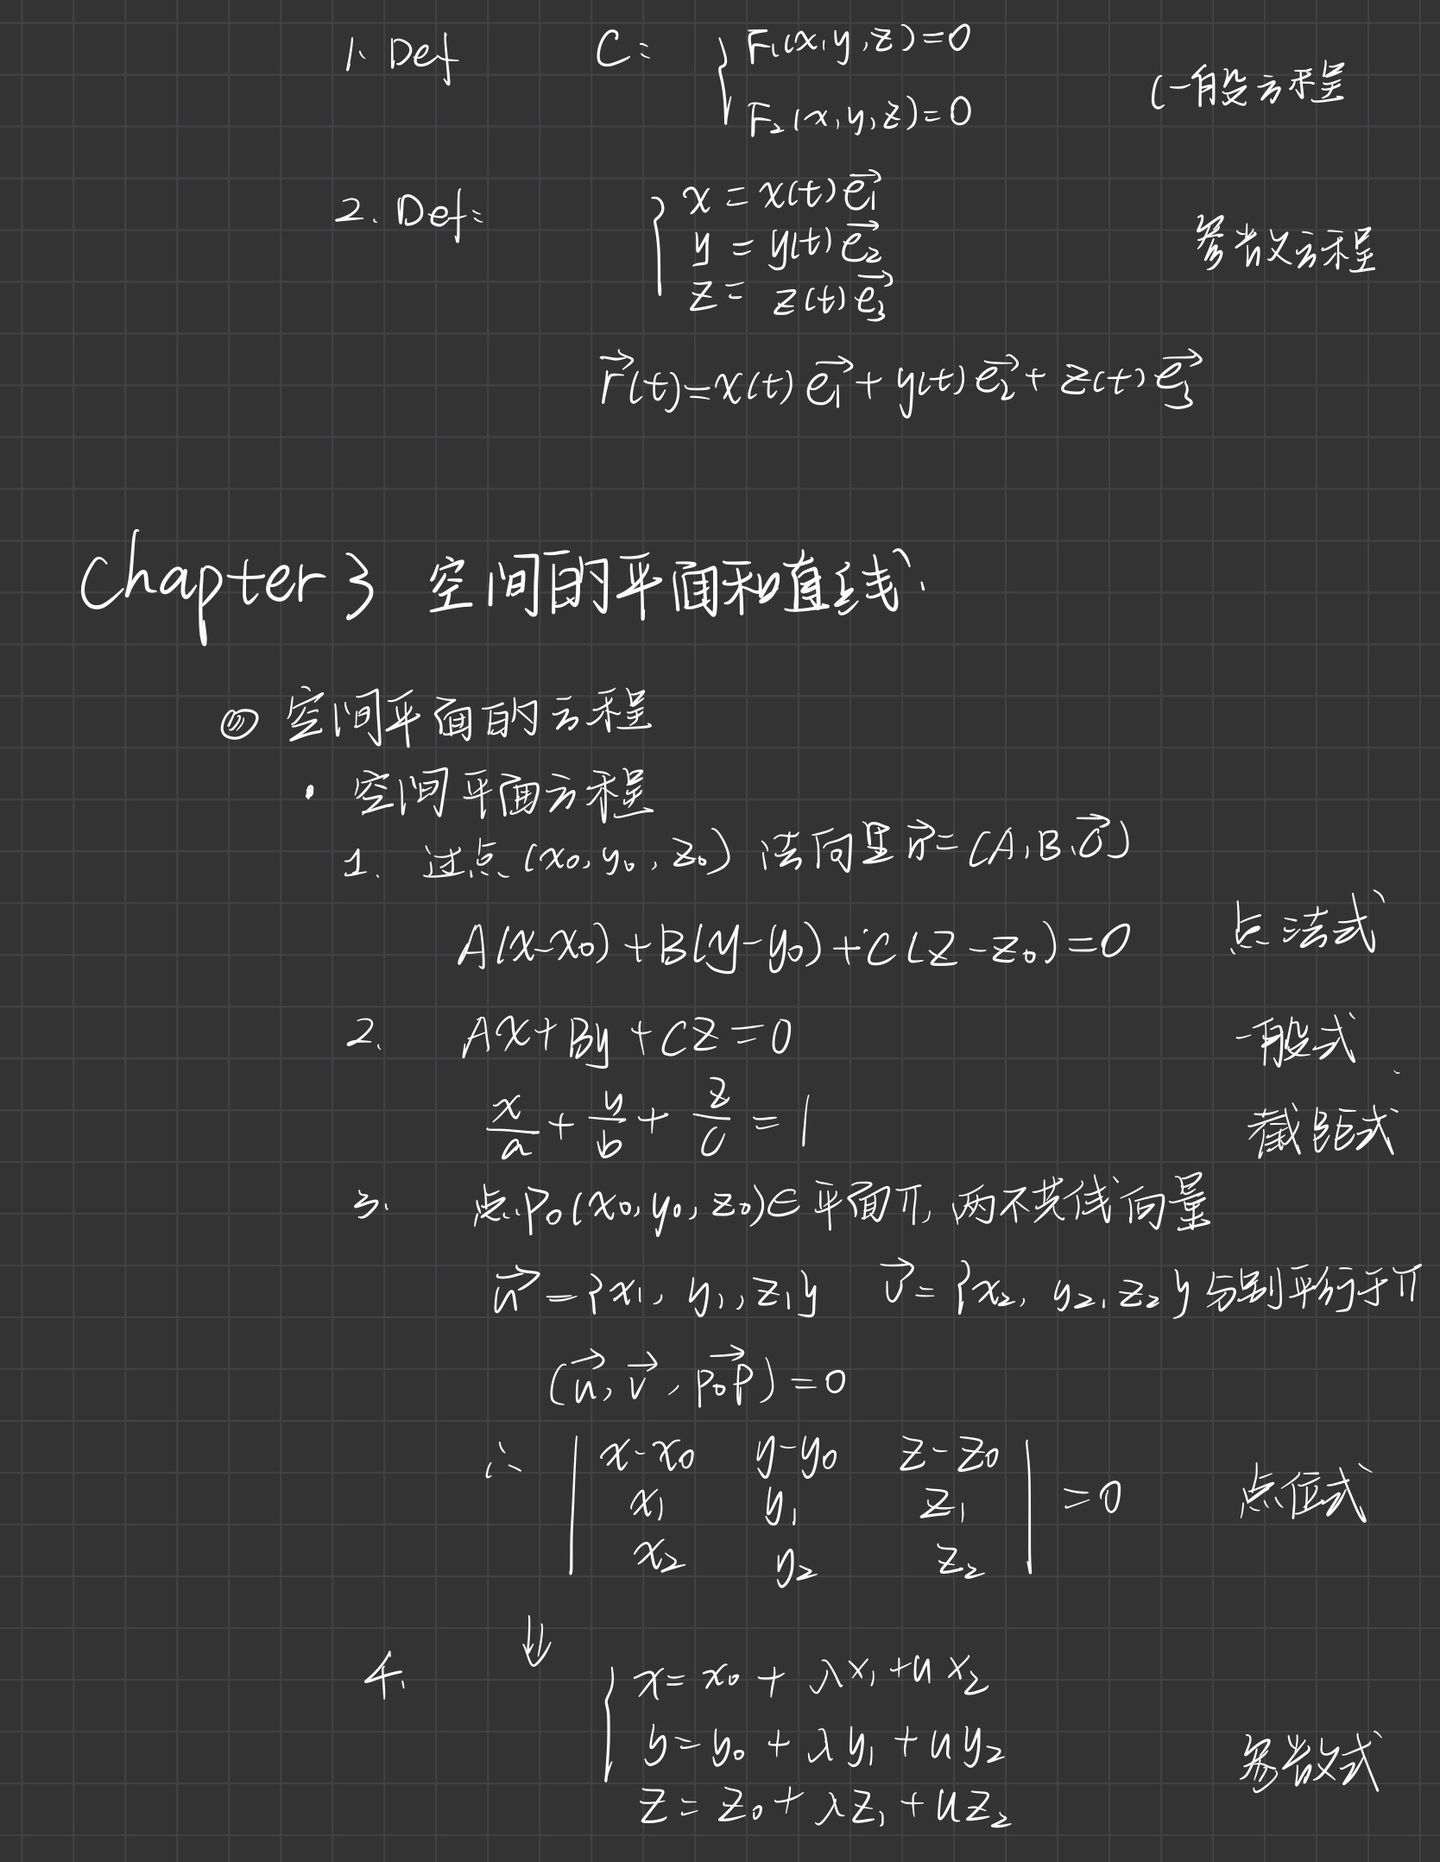 1. Def C: { F₁(x,y,z)=0 (一般方程
F₂(x,y,z)=0
2. Def: { x = x(t)e₁→
y = y(t)e₂→ 参数方程
z = z(t)e₃→
r→(t)=x(t)e₁→+y(t)e₂→+z(t)e₃→
Chapter 3 空间的平面和直线
◎ 空间平面的方程
· 空间平面方程
1. 过点(x₀,y₀,z₀) 法向量n→=(A,B,C→)
A(x-x₀)+B(y-y₀)+C(z-z₀)=0 点法式
2. Ax+By+Cz=0 一般式
x/a + y/b + z/c = 1 截距式
3. 点P₀(x₀,y₀,z₀)∈平面π, 两不共线向量
u→={x₁, y₁, z₁} v→={x₂, y₂, z₂}分别平行于π
(u→, v→, p₀p→)=0
∴ | x-x₀ y-y₀ z-z₀ |
| x₁ y₁ z₁ | =0 点位式
| x₂ y₂ z₂ |
⇓
4. { x=x₀+λx₁+ux₂
y=y₀+λy₁+uy₂ 参数式
z=z₀+λz₁+uz₂